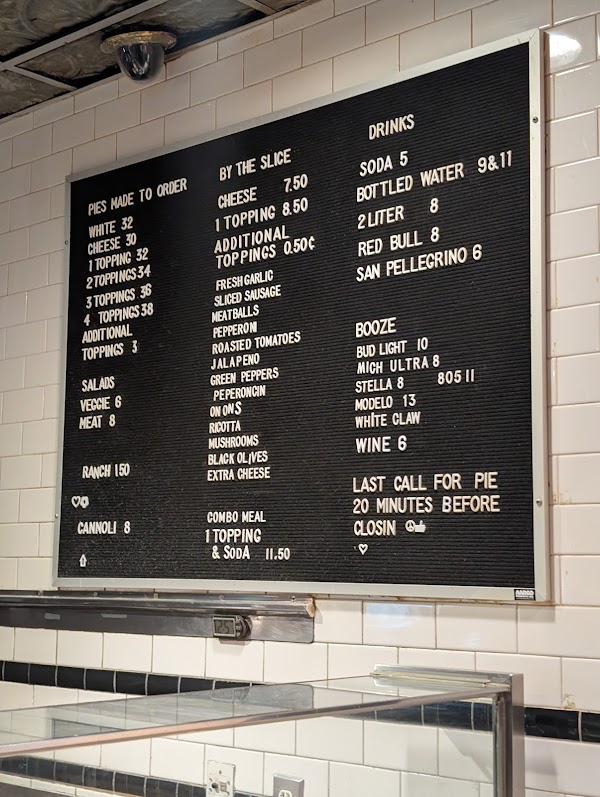 PIES MADE TO ORDER
WHITE 32
CHEESE 30
1 TOPPING 32
2 TOPPINGS 34
3 TOPPINGS 36
4 TOPPINGS 38
ADDITIONAL
TOPPINGS 3
SALADS
VEGGIE 6
MEAT 8
RANCH 1 50
CANNOLI 8
BY THE SLICE
CHEESE 7.50
1 TOPPING 8.50
ADDITIONAL
TOPPINGS 0.50¢
FRESH GARLIC
SLICED SAUSAGE
MEATBALLS
PEPPERONI
ROASTED TOMATOES
JALAPENO
GREEN PEPPERS
PEPERONCIN
ON ONS
RICOTTA
MUSHROOMS
BLACK OLIVES
EXTRA CHEESE
COMBO MEAL
1 TOPPING
& SODA 11.50
DRINKS
SODA 5
BOTTLED WATER 9&11
2 LITER 8
RED BULL 8
SAN PELLEGRINO 6
BOOZE
BUD LIGHT 10
MICH ULTRA 8
STELLA 8 805 11
MODELO 13
WHITE CLAW
WINE 6
LAST CALL FOR PIE
20 MINUTES BEFORE
CLOSIN